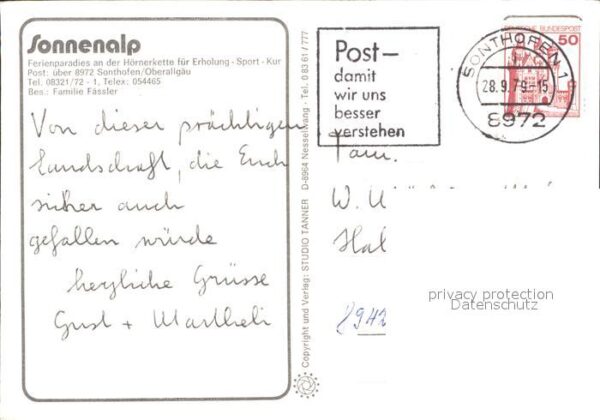 Sonnenalp
Ferienparadies an der Hörnerkette für Erholung - Sport - Kur
Post: über 8972 Sonthofen/Oberallgäu
Tel. 08321/72 - 1, Telex: 054465
Bes.: Familie Fässler
Von dieser prächtigen
Landschaft, die Euch
sicher auch
gefallen würde
herzliche Grüsse
Gust + Martheli
Copyright und Verlag: STUDIO TANNER D-8964 Nesselwang · Tel. 0 83 61 / 777
Post—
damit
wir uns
besser
verstehen
SONTHOFEN 1
28.9.79-15
8972
BUNDESPOST
50
Fam.
W. U
Hal
8942
privacy protection
Datenschutz